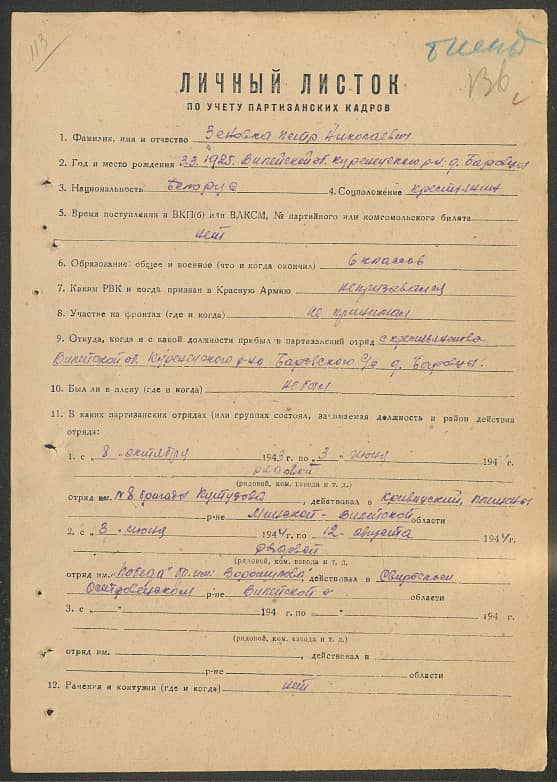 113
ЛИЧНЫЙ ЛИСТОК
ПО УЧЕТУ ПАРТИЗАНСКИХ КАДРОВ
1. Фамилия, имя и отчество Зеновка Петр Николаевич
2. Год и место рождения 3.3.1925. Вилейской об. Куренецкого р-н. д. Баровцы
3. Национальность Беларус 4. Соцположение крестьянин
5. Время поступления в ВКП(б) или ВЛКСМ, № партийного или комсомольского билета
нет
6. Образование: общее и военное (что и когда окончил) 6 классов
7. Каким РВК и когда призван в Красную Армию непризывался
8. Участие на фронтах (где и когда) не принимал
9. Откуда, когда и с какой должности прибыл в партизанский отряд с крестьянства
Вилейской об. Куренецкого р-на Баровского с/с д. Баровцы.
10. Был ли в плену (где и когда) не был
11. В каких партизанских отрядах (или группах состоял, занимаемая должность и район действия
отряда:
1. с „ 8 " октябру 1943 г. по „ 3 " июня 194 г.
рядовой
(рядовой, ком. взвода и т. л.)
отряд им. №8 бригады Кутузова, действовал в Кривичский,
р-не Минской - Вилейской области
2. с „ 3 " июня 1944 г. по „ 12 " августа 1944 г.
рядовой
(рядовой, ком. взвода и т. л.
отряд им. „Победа" бр. им. Ворошилова, действовал в
р-не Вилейской о области
3. с „ " 194 г. по „ " 194 г.
(рядовой, ком. взвода и т. л.)
отряд им. , действовал в
р-не области
12. Ранения и контузии (где и когда) нет